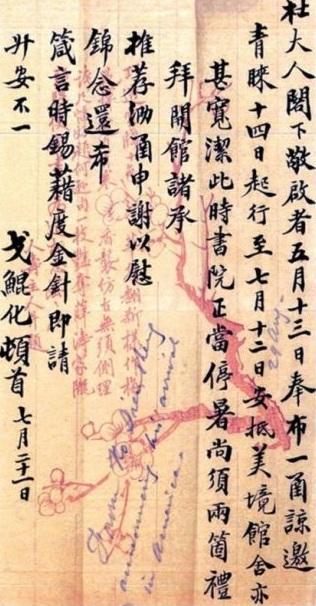 杜大人閣下敬啟者五月十三日奉布一圅諒邀
青睞十四日起行至七月十二日安抵美境館舍亦
甚寬潔此時書院正當停暑尚須兩箇禮
拜開館諸承
推荐泐圅申謝以慰
錦念還希
箴言時錫藉度金針即請
升安不一
戈鯤化頓首 七月二十一日
29 Aug.
to
announcing his arrival
in America.